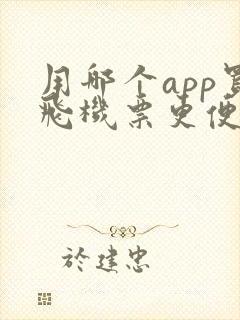 用哪个app買
飛機票更便
於建忠